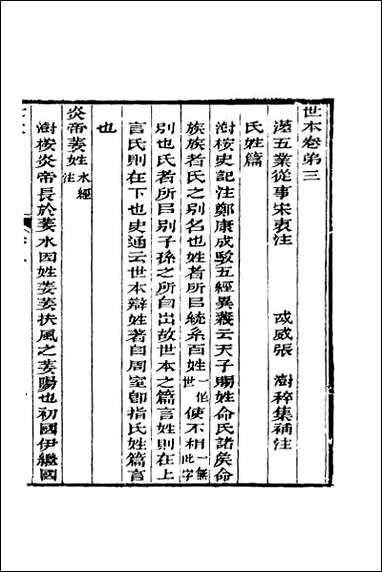 世本卷弟三
漢五業從事宋衷注　武威張　澍稡集補注
氏姓篇
澍桉史記注鄭康成駮五經異義云天子賜姓命氏諸矦命
族族者氏之別名也姓者所㠯統系百姓一作世使不相一無此字
別也氏者所㠯別子孫之所自出故世本之篇言姓則在上
言氏則在下也史通云世本辯姓著自周室卽指氏姓篇言
也
炎帝姜姓水經注
澍桉炎帝長於姜水因姓姜姜扶風之美陽也初國伊繼國